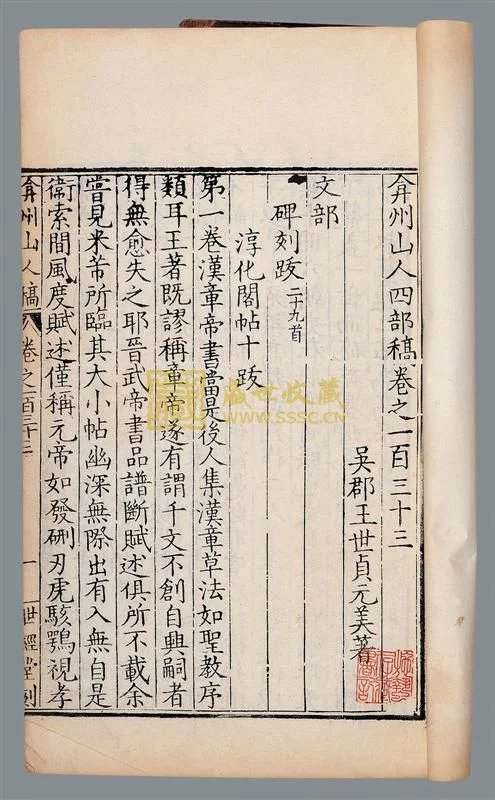 弇州山人四部稿卷之一百三十三
吳郡王世貞元美著
文部
碑刻跋二十九首
淳化閣帖十跋
第一卷漢章帝書當是後人集漢章草法如聖教序
類耳王著既謬稱章帝遂有謂千文不創自興嗣者
得無愈失之耶晉武帝書品譜斷賦述俱所不載余
嘗見米芾所臨其大小帖幽深無際出有入無自是
衛索間風度賦述僅稱元帝如發硎刃虎駭鶚視孝
弇州山人稿 卷之百三十三 一 世經堂刻
盛世收藏
WWW.SSSC.CN